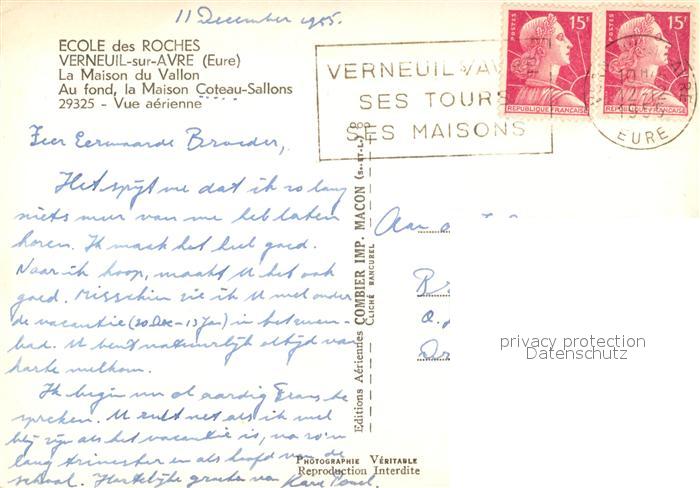 11 December 1955.
ECOLE des ROCHES
VERNEUIL-sur-AVRE (Eure)
La Maison du Vallon
Au fond, la Maison Coteau-Sallons
29325 - Vue aérienne
VERNEUIL S/AV
SES TOURS
SES MAISONS
POSTES 15F
REPUBLIQUE FRANÇAISE
POSTES 15F
REPUBLIQUE FRANÇAISE
EURE
Zeer Eerwaarde Broeder,
Het spijt me dat ik zo lang
niets meer van me heb laten
horen. Ik maak het heel goed.
Naar ik hoop, maakt U het ook
goed. Misschien zie ik U wel onder
de vacantie (20 Dec - 13 Jan) in het zwem-
bad. U bent natuurlijk altijd van
harte welkom.
Ik begin nu al aardig Frans te
spreken. U zult net als ik wel
blij zijn als het vacantie is, na zo'n
lang trimester en als hoofd van de
school. Hartelijke groeten van Karel
Editions Aériennes COMBIER IMP. MACON (S.-ET-L.)
CLICHÉ RANCUREL
Aan
privacy protection
Datenschutz
PHOTOGRAPHIE VÉRITABLE
Reproduction Interdite